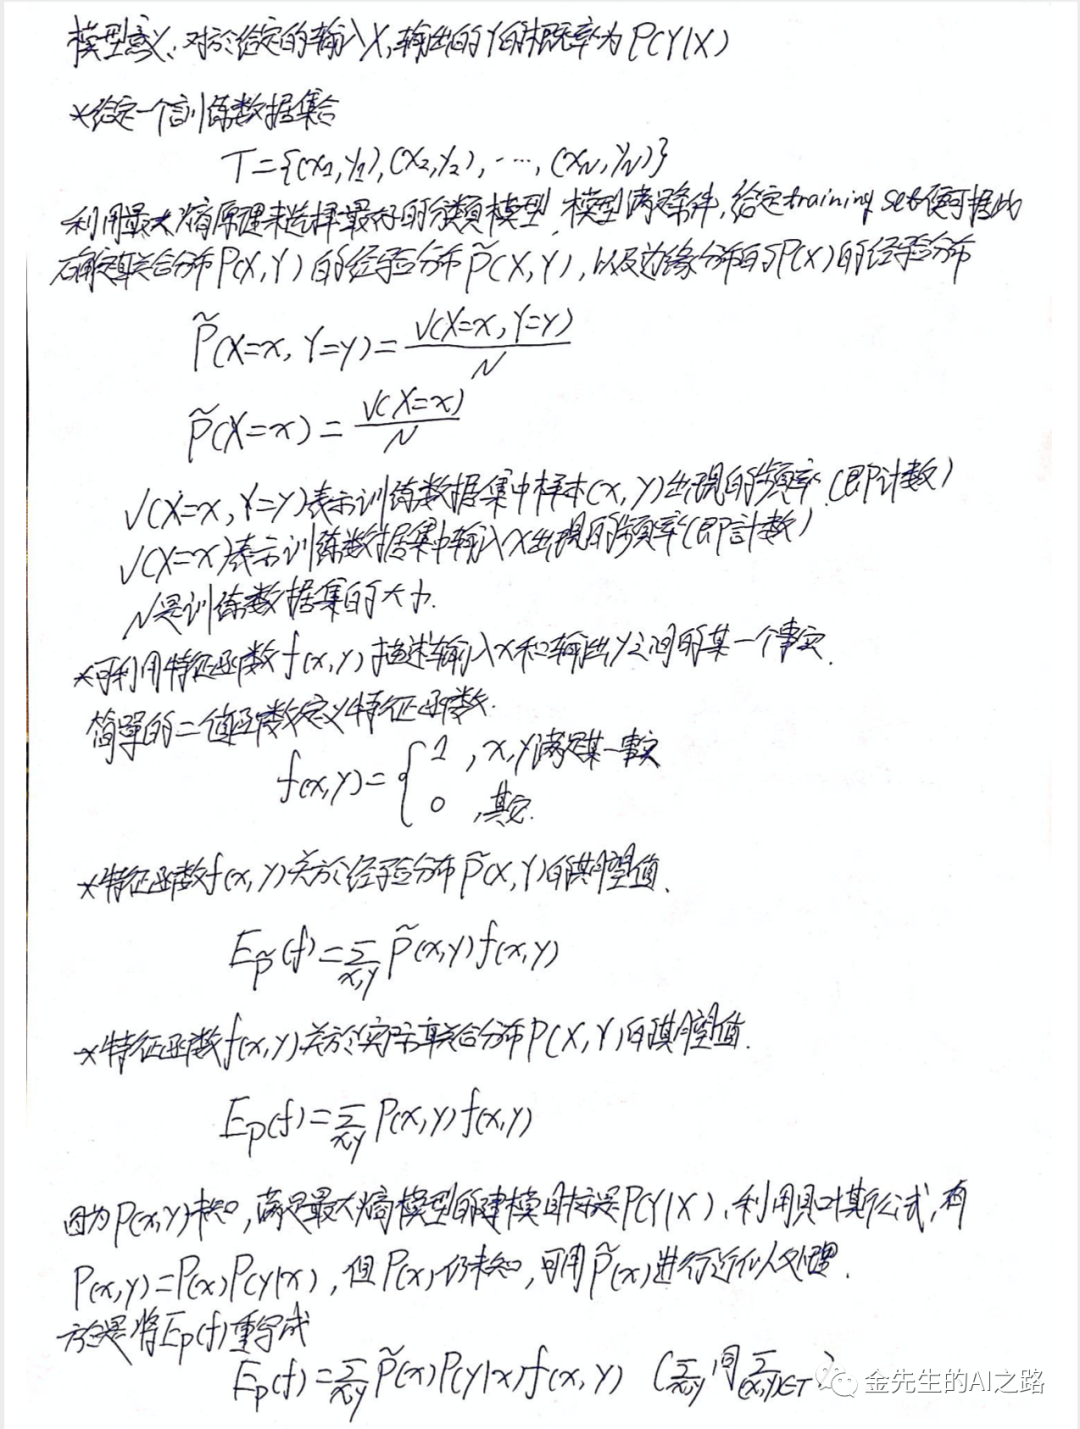 模型意义: 对於给定的输入X,输出的Y的概率为P(Y|X)
*给定一个訓练数据集合
T={(x1,y1),(x2,y2),····,(xN,yN)}
利用最大熵原理来选择最好的分類模型. 模型满足条件,给定training set便可据此
确定联合分布P(X,Y)的经验分布P̃(X,Y),以及边缘分布的P(X)的经验分布
P̃(X=x, Y=y)=V(X=x,Y=y)/N
P̃(X=x)=V(X=x)/N
V(X=x,Y=y)表示训练数据集中样本(x,y)出現的频率(即计数)
V(X=x)表示训练数据集中输入x出現的频率(即計数)
N是训练数据集的大小.
*可利用特征函数f(x,y)描述输入x和输出y之间的某一个事实.
简單的二值函数定义特征函数.
f(x,y)={1 ,x,y满足某一事实
0 ,其它.
*特征函数f(x,y)关於经验分布P̃(X,Y)的期望值.
EP̃(f)=∑x,y P̃(x,y)f(x,y)
*特征函数f(x,y)关於实际联合分布P(X,Y)的期望值.
Ep(f)=∑x,y P(x,y)f(x,y)
因为P(x,y)未知,满足最大熵模型的建模目标是P(Y|X).利用貝叶斯公式,有
P(x,y)=P(x)P(y|x),但P(x)仍未知,可用P̃(x)進行近似处理.
於是将Ep(f)重写成
Ep(f)=∑x,y P̃(x)P(y|x)f(x,y) (∑x,y同∑(x,y)∈T)
金先生的AI之路